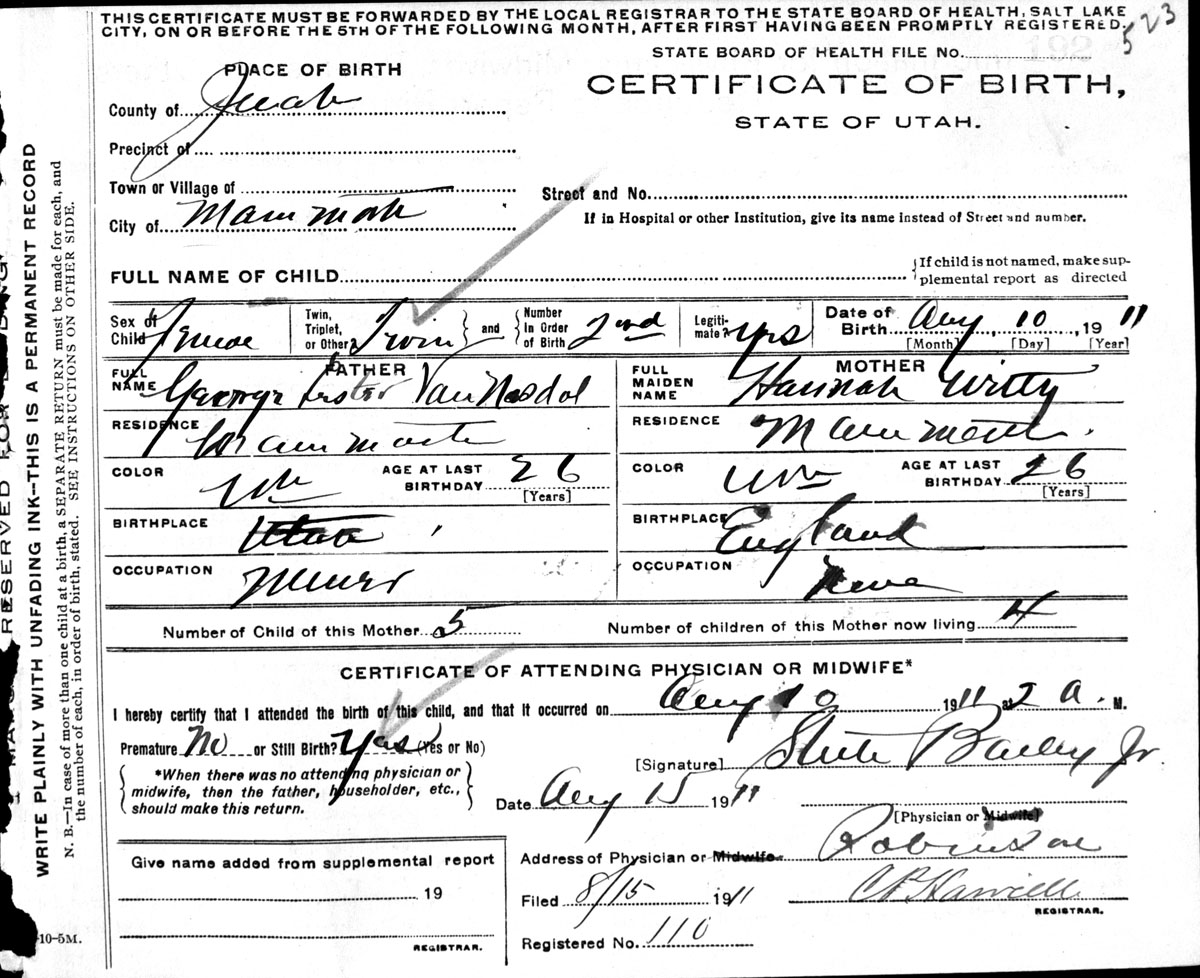 THIS CERTIFICATE MUST BE FORWARDED BY THE LOCAL REGISTRAR TO THE STATE BOARD OF HEALTH, SALT LAKE
CITY, ON OR BEFORE THE 5TH OF THE FOLLOWING MONTH, AFTER FIRST HAVING BEEN PROMPTLY REGISTERED.
523
STATE BOARD OF HEALTH FILE No.
192
PLACE OF BIRTH
CERTIFICATE OF BIRTH,
STATE OF UTAH.
County of Juab
Precinct of
Town or Village of
Street and No.
City of Mammoth
If in Hospital or other Institution, give its name instead of Street and number.
FULL NAME OF CHILD
If child is not named, make sup-
plemental report as directed
Sex of Child Female
Twin, Triplet, or Other? Twin and Number In Order of Birth 2nd
Legiti-mate? yes
Date of Birth Aug 10, 1911
[Month] [Day] [Year]
FATHER
MOTHER
FULL NAME George Lester Van Nosdol
FULL MAIDEN NAME Hannah Witty
RESIDENCE Mammoth
RESIDENCE Mammoth.
COLOR Wh AGE AT LAST BIRTHDAY 26
[Years]
COLOR Wh AGE AT LAST BIRTHDAY 26
[Years]
BIRTHPLACE Utah
BIRTHPLACE England
OCCUPATION Miner
OCCUPATION None
Number of Child of this Mother 5
Number of children of this Mother now living 4
CERTIFICATE OF ATTENDING PHYSICIAN OR MIDWIFE*
I hereby certify that I attended the birth of this child, and that it occurred on Aug 10 1911 at 2 a. M.
Premature No or Still Birth? Yes (Yes or No)
[Signature] Steele Bailey Jr
*When there was no attending physician or
midwife, then the father, householder, etc.,
should make this return.
Date Aug 15 1911
[Physician or Midwife]
Give name added from supplemental report
19
REGISTRAR.
Address of Physician or Midwife Robinson
Filed 8/15 1911
REGISTRAR.
Registered No. 110
-10-5M.
WRITE PLAINLY WITH UNFADING INK—THIS IS A PERMANENT RECORD
N. B.—In case of more than one child at a birth, a SEPARATE RETURN must be made for each, and
the number of each, in order of birth, stated. SEE INSTRUCTIONS ON OTHER SIDE.